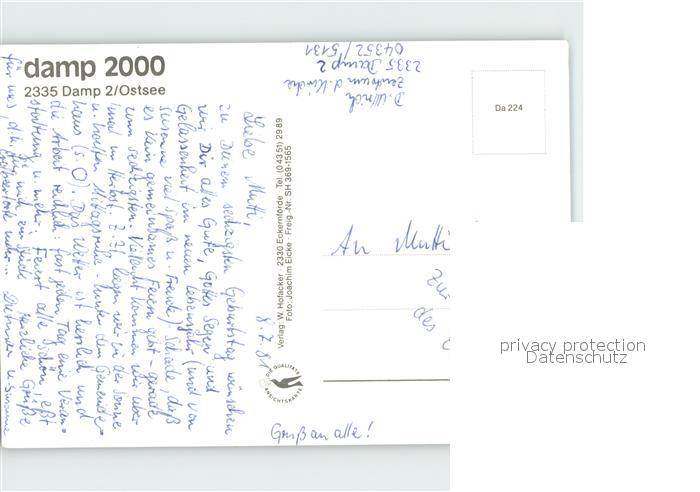 damp 2000
2335 Damp 2/Ostsee
D. Ulrich
Zentrum d. Kirche
2335 Damp 2
04352/5131
Da 224
8.7.81
Liebe Mutti,
zu Deinem sechzigsten Geburtstag wünschen
wir Dir alles Gute, Gottes Segen und
Gelassenheit im neuen Lebensjahr (und von
Susanne viel Spaß u. Freude). Schade, daß
es kein gemeinsames Feiern gibt - gerade
zum sechzigsten. Vielleicht kommen wir über=
haupt im Herbst. Z.Zt. liegen wir in der Sonne
u. Mittagsruhe hinter dem Gemeinde=
haus (s. O). Das Wetter ist herrlich und
die Arbeit reichlich: fast jeden Tag eine Veran=
staltung u. mehr. Feiert alle schön, eßt
für uns, d.h. für mich ein Stück
mehr... herzliche Grüße
u. Susanne
Verlag: W. Hofacker · 2330 Eckernförde · Tel. (04351) 2989
Foto: Joachim Eicke - Freig.-Nr. SH 369-1565
DIE QUALITÄTS
ANSICHTSKARTE
An Mutti
zu
des
Gruß an alle!
privacy protection
Datenschutz